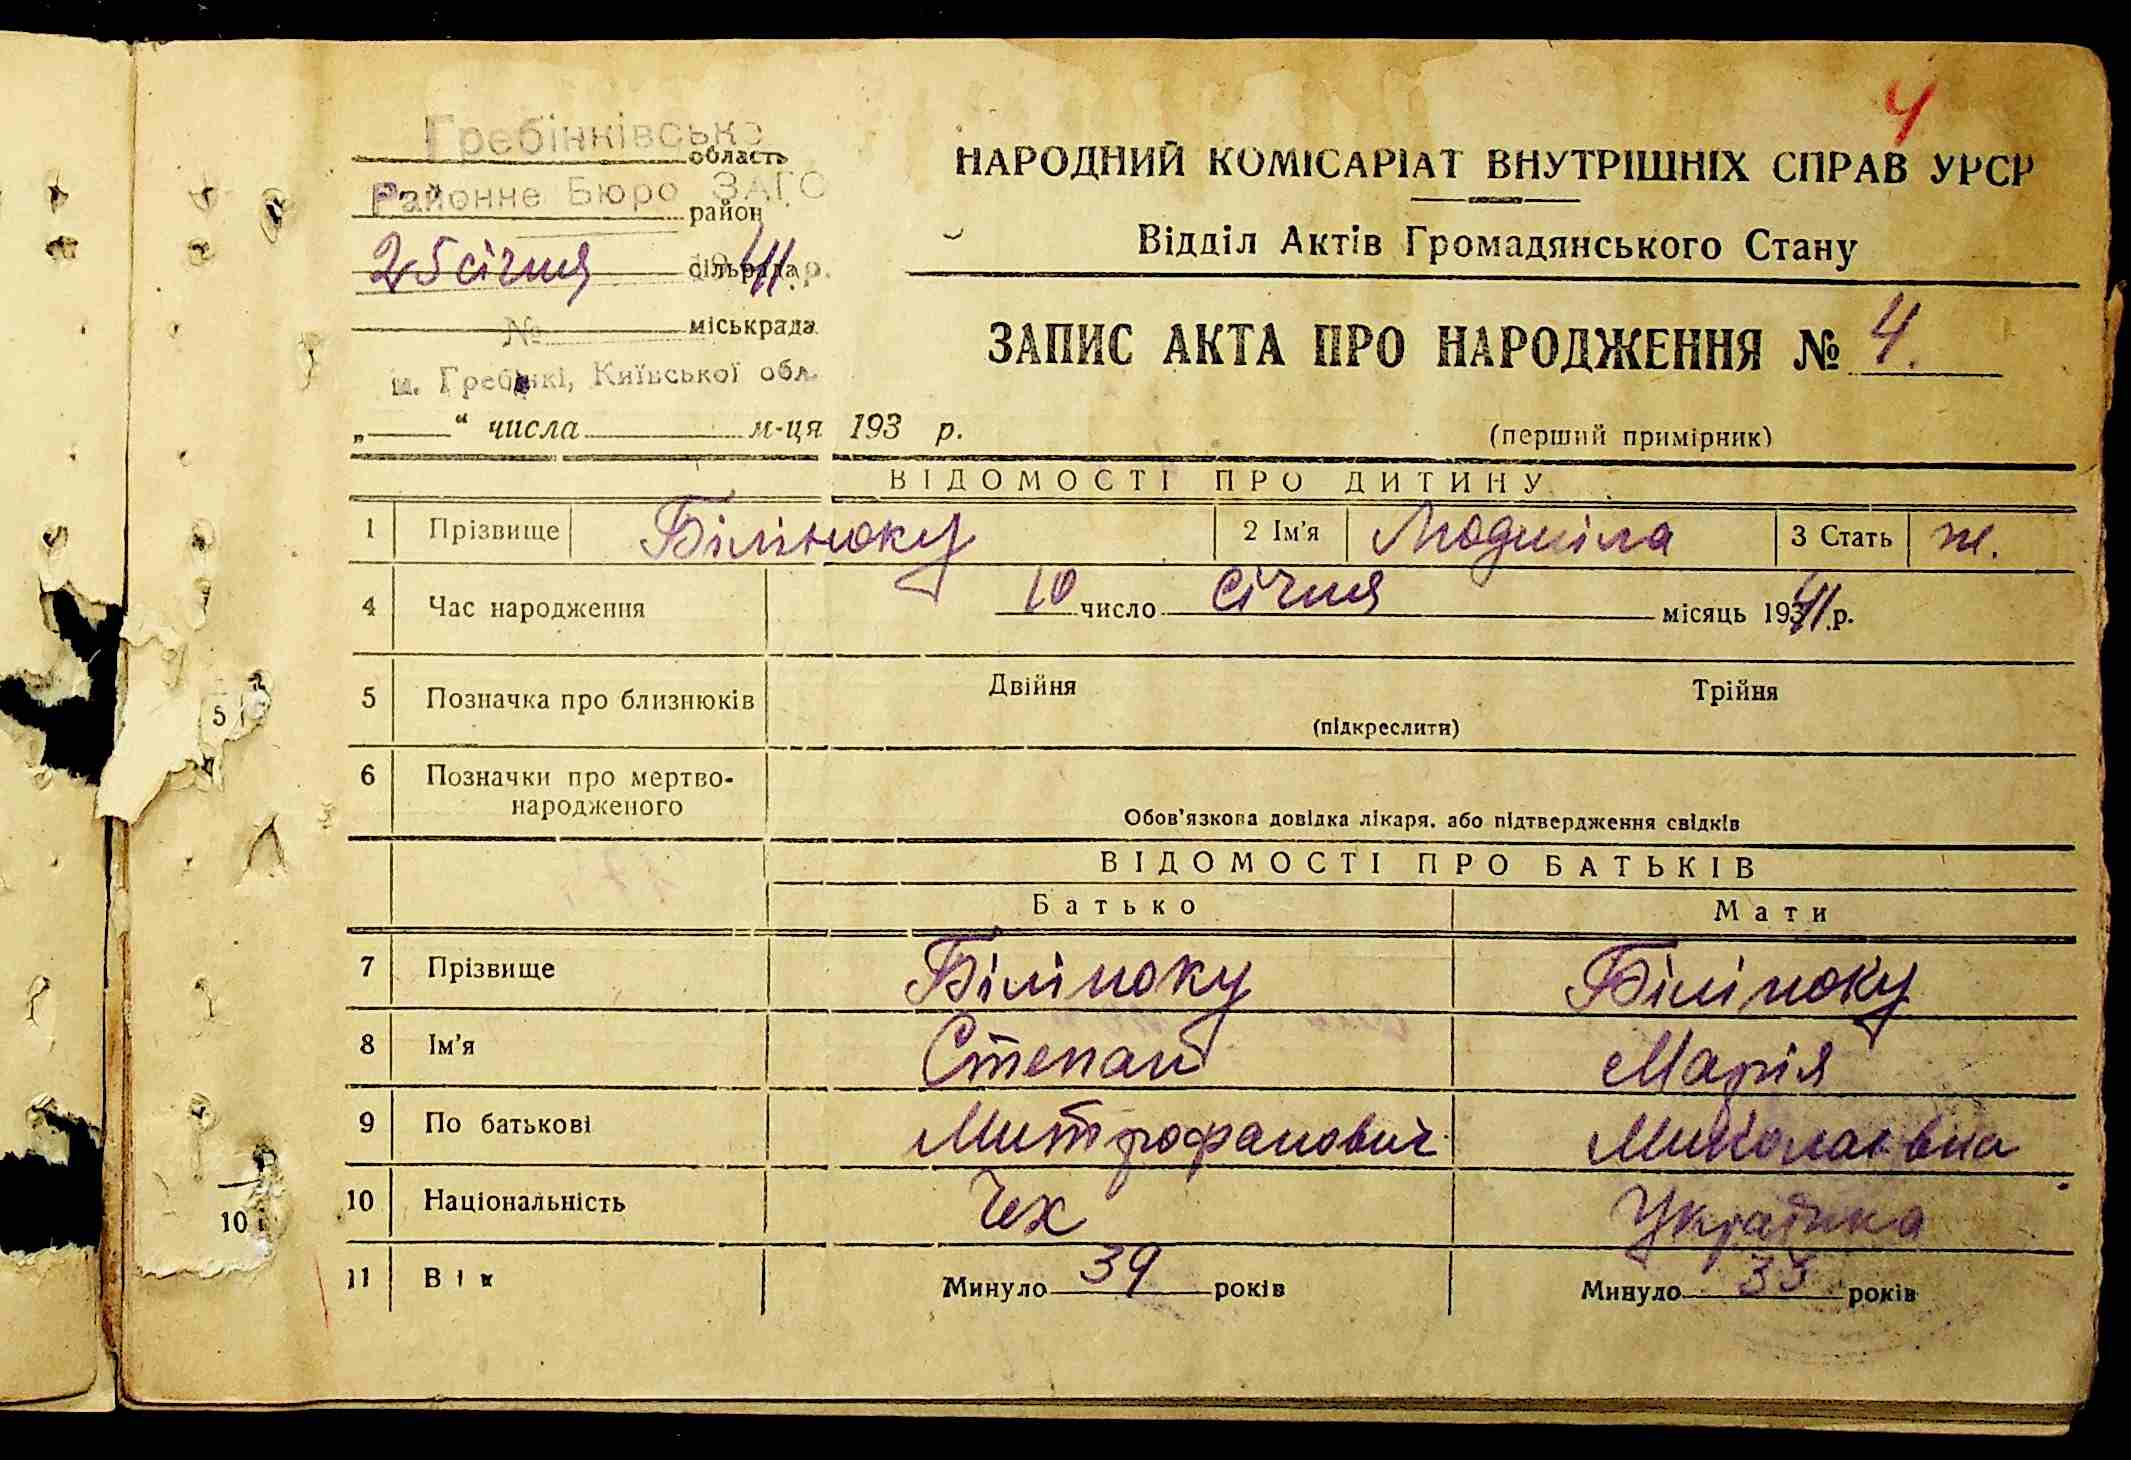 4
Гребінківське
область
Районне Бюро ЗАГС
район
25 січня 1941 р.
сільрада
№ міськрада
м. Гребінкі, Київської обл.
„ “ числа м-ця 193 р.
НАРОДНИЙ КОМІСАРІАТ ВНУТРІШНІХ СПРАВ УРСР
Відділ Актів Громадянського Стану
ЗАПИС АКТА ПРО НАРОДЖЕННЯ № 4.
(перший примірник)
ВІДОМОСТІ ПРО ДИТИНУ
1 Прізвище Біліноку 2 Ім'я Людміла 3 Стать ж.
4 Час народження 10 число січня місяць 1941 р.
5 Позначка про близнюків Двійня Трійня
(підкреслити)
6 Позначки про мертво-
народженого
Обов'язкова довідка лікаря, або підтвердження свідків
ВІДОМОСТІ ПРО БАТЬКІВ
Батько Мати
7 Прізвище Біліноку Біліноку
8 Ім'я Степан Марія
9 По батькові Митрофанович Миколаївна
10 Національність Чех Українка
11 Вік Минуло 39 років Минуло 33 років
5
10